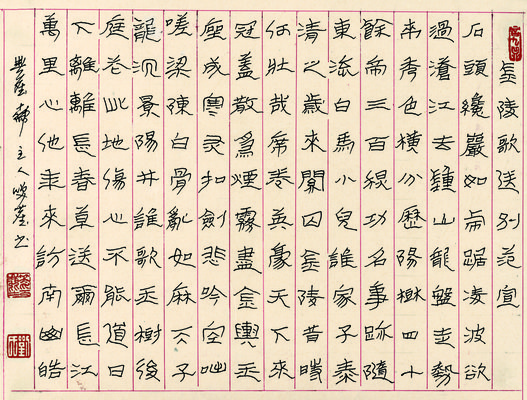 金陵歌送別范宣
石頭巉巖如虎踞凌波欲
過滄江去鍾山龍盤走勢
來秀色橫分歷陽樹四十
餘帝三百秋功名事跡隨
東流白馬小兒誰家子泰
清之歲來關囚金陵昔時
何壯哉席卷英豪天下來
冠蓋散為煙霧盡金輿玉
座成寒灰扣劍悲吟空咄
嗟梁陳白骨亂如麻天子
龍沉景陽井誰歌玉樹後
庭花此地傷心不能道目
下離離長春草送爾長江
萬里心他年來訪南山皓
軒主人